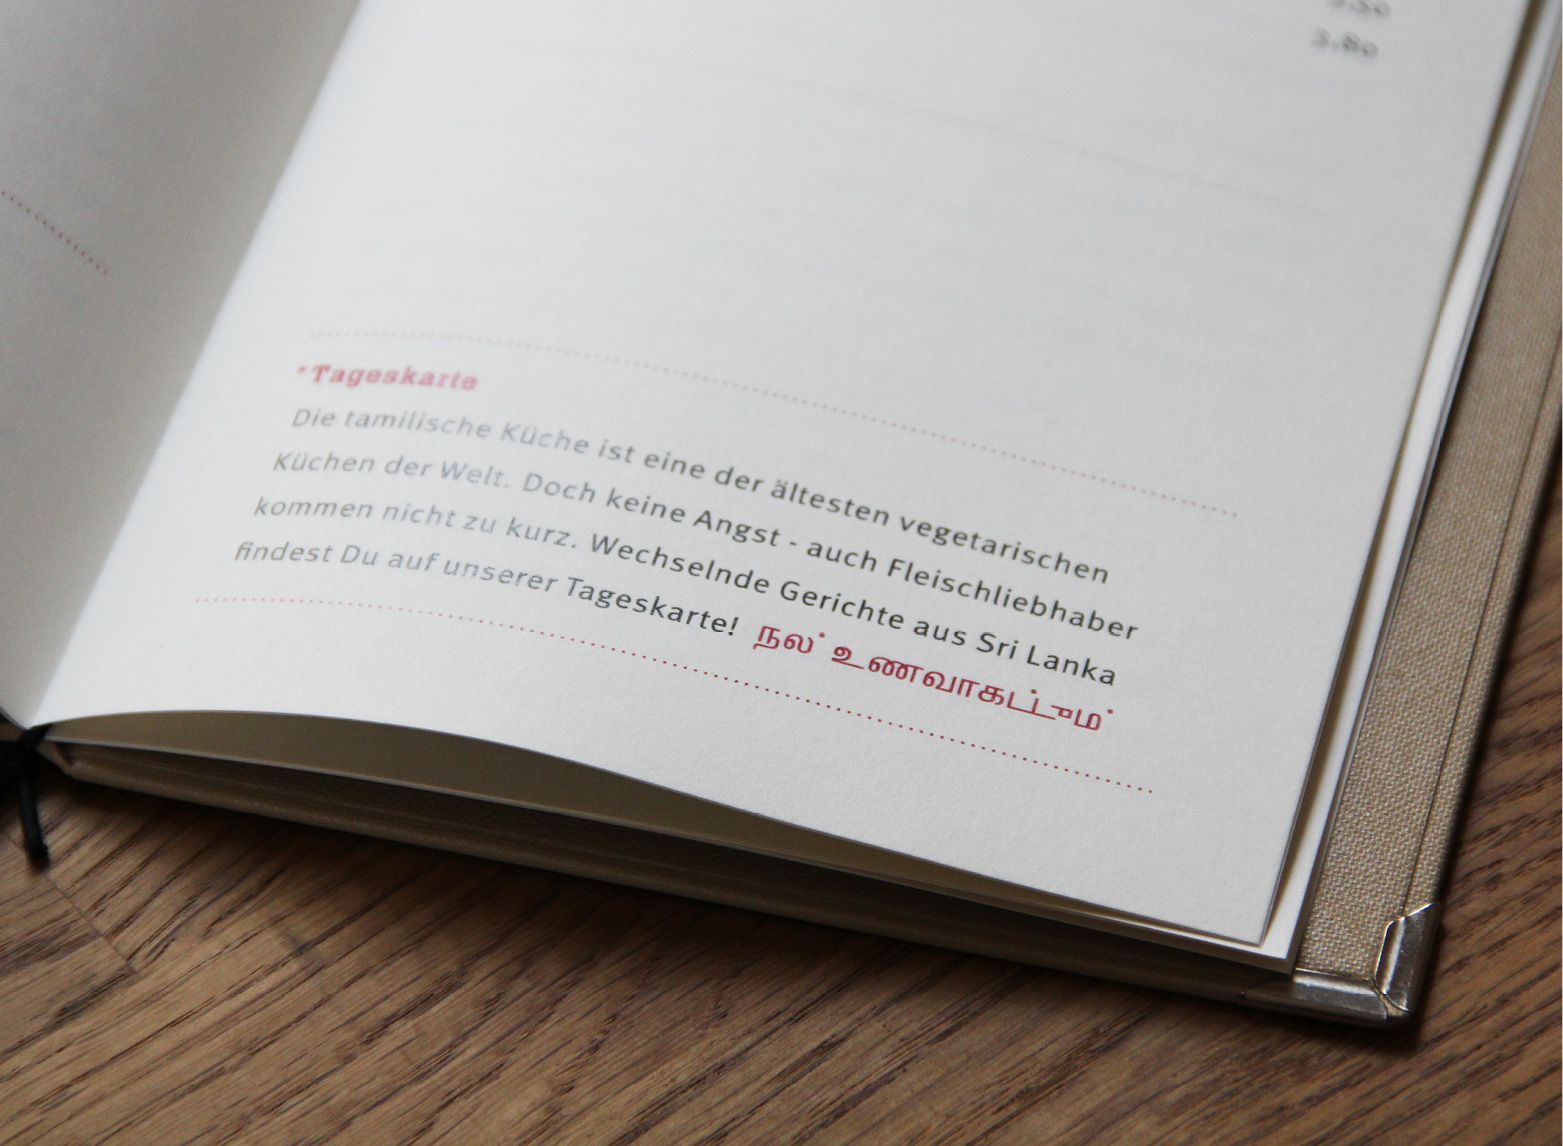 3.80
*Tageskarte
Die tamilische Küche ist eine der ältesten vegetarischen
Küchen der Welt. Doch keine Angst - auch Fleischliebhaber
kommen nicht zu kurz. Wechselnde Gerichte aus Sri Lanka
findest Du auf unserer Tageskarte! நல் உணவாகட்டும்